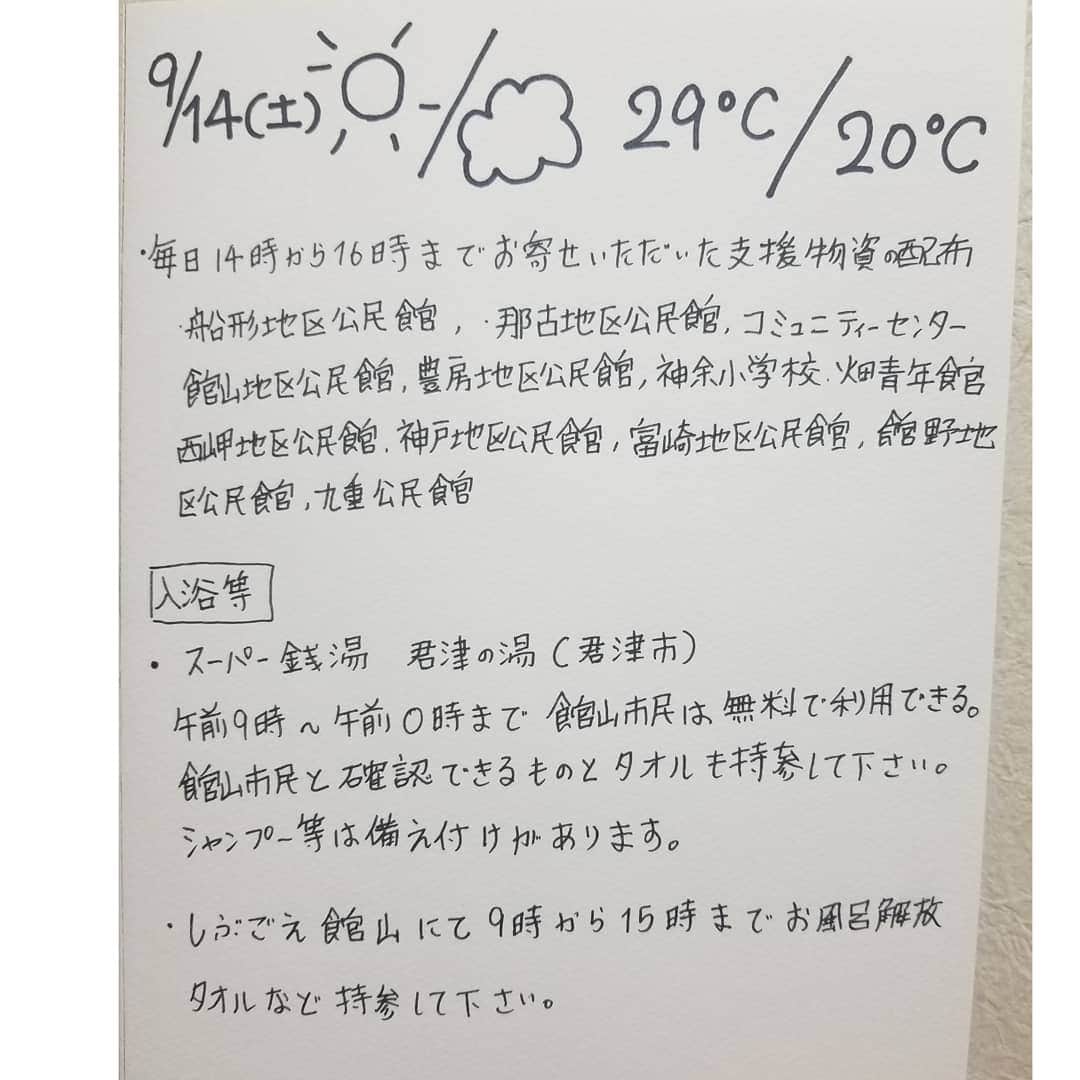 9/14(土) / 29℃/20℃
・毎日14時から16時までお寄せいただいた支援物資の配布
・船形地区公民館，・那古地区公民館，コミュニティーセンター
館山地区公民館，豊房地区公民館，神余小学校．畑青年館
西岬地区公民館．神戸地区公民館，富崎地区公民館，館野地
区公民館，九重公民館
入浴等
・スーパー銭湯 君津の湯(君津市)
午前9時～午前0時まで 館山市民は無料で利用できる。
館山市民と確認できるものとタオルも持参して下さい。
シャンプー等は備え付けがあります。
・しぶごえ館山にて9時から15時までお風呂解放
タオルなど持参して下さい。